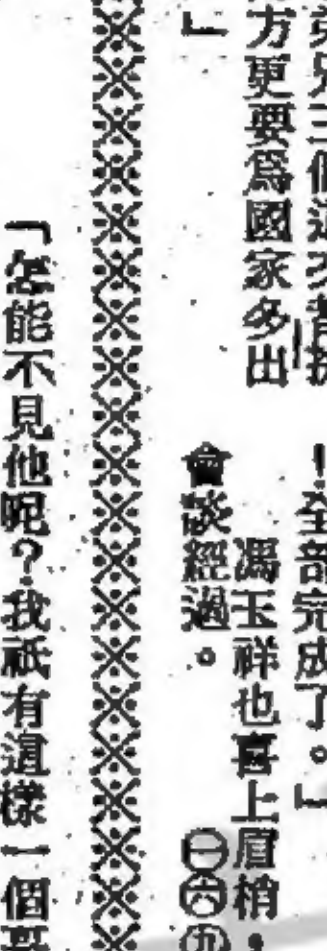 方更要爲國家多出
」
！全部完成了。」
馮玉祥也喜上眉梢，
會談經過。 ㊀㊅㊄
「怎能不見他呢？我祇有這樣一個